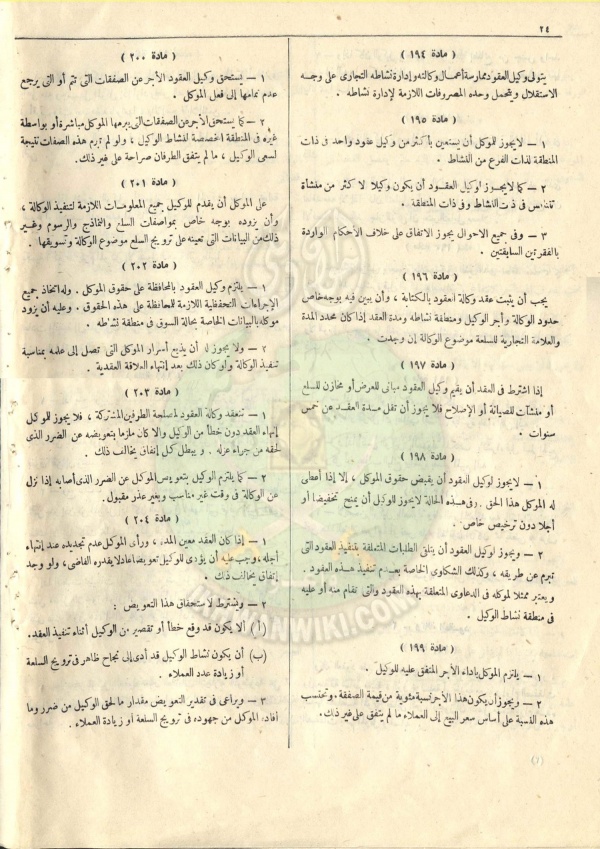 ٢٤
( مادة ١٩٤ )
يتولى وكيل العقود ممارسة أعمال وكالته وإدارة نشاطه التجارى على وجه
الاستقلال ويتحمل وحده المصروفات اللازمة لإدارة نشاطه .
( مادة ١٩٥ )
١ – لا يجوز للموكل أن يستعين بأكثر من وكيل عقود واحد فى ذات
المنطقة لذات الفرع من النشاط .
٢ – كما لا يجوز لوكيل العقود أن يكون وكيلا لأكثر من منشأة
تتنافس فى ذات النشاط وفى ذات المنطقة .
٣ – وفى جميع الأحوال يجوز الاتفاق على خلاف الأحكام الواردة
بالفقرتين السابقتين .
( مادة ١٩٦ )
يجب أن يثبت عقد وكالة العقود بالكتابة ، وأن يبين فيه بوجه خاص
حدود الوكالة وأجر الوكيل ومنطقة نشاطه ومدة العقد إذا كان محدد المدة
والعلامة التجارية للسلعة موضوع الوكالة إن وجدت .
( مادة ١٩٧ )
إذا اشترط فى العقد أن يقيم وكيل العقود مبانى للعرض أو مخازن للسلع
أو منشآت للصيانة أو الإصلاح فلا يجوز أن تقل مدة العقد عن خمس
سنوات .
( مادة ١٩٨ )
١ – لا يجوز لوكيل العقود أن يقبض حقوق الموكل ، إلا إذا أعطى
له الموكل هذا الحق . وفى هذه الحالة لا يجوز للوكيل أن يمنح تخفيضا أو
أجلا دون ترخيص خاص .
٢ – ويجوز لوكيل العقود أن يتلقى الطلبات المتعلقة بتنفيذ العقود التى
تبرم عن طريقه ، وكذلك الشكاوى الخاصة بعدم تنفيذ هذه العقود .
ويعتبر ممثلا لموكله فى الدعاوى المتعلقة بهذه العقود والتى تقام منه أو عليه
فى منطقة نشاط الوكيل .
( مادة ١٩٩ )
١ – يلتزم الموكل بأداء الأجر المتفق عليه للوكيل .
٢ – ويجوز أن يكون هذا الأجر نسبة مئوية من قيمة الصفقة . وتحتسب
هذه النسبة على أساس سعر البيع إلى العملاء ما لم يتفق على غير ذلك .
( مادة ٢٠٠ )
١ – يستحق وكيل العقود الأجر عن الصفقات التى تتم أو التى يرجع
عدم تمامها إلى فعل الموكل .
٢ – كما يستحق الأجر عن الصفقات التى يبرمها الموكل مباشرة أو بواسطة
غيره فى المنطقة المخصصة لنشاط الوكيل ، ولو لم تبرم هذه الصفقات نتيجة
لسعى الوكيل ، ما لم يتفق الطرفان صراحة على غير ذلك .
( مادة ٢٠١ )
على الموكل أن يقدم للوكيل جميع المعلومات اللازمة لتنفيذ الوكالة ،
وأن يزوده بوجه خاص بمواصفات السلع والنماذج والرسوم وغير
ذلك من البيانات التى تعينه على ترويج السلع موضوع الوكالة وتسويقها .
( مادة ٢٠٢ )
١ – يلتزم وكيل العقود بالمحافظة على حقوق الموكل . وله اتخاذ جميع
الإجراءات التحفظية اللازمة للمحافظة على هذه الحقوق . وعليه أن يزود
موكله بالبيانات الخاصة بحالة السوق فى منطقة نشاطه .
٢ – ولا يجوز له أن يذيع أسرار الموكل التى تصل إلى علمه بمناسبة
تنفيذ الوكالة ولو كان ذلك بعد إنتهاء العلاقة العقدية .
( مادة ٢٠٣ )
١ – تنعقد وكالة العقود لمصلحة الطرفين المشتركة ، فلا يجوز للموكل
إنهاء العقد دون خطأ من الوكيل وإلا كان ملزما بتعويضه عن الضرر الذى
لحقه من جراء عزله . ويبطل كل إتفاق يخالف ذلك .
٢ – كما يلتزم الوكيل بتعويض الموكل عن الضرر الذى أصابه إذا نزل
عن الوكالة فى وقت غير مناسب وبغير عذر مقبول .
( مادة ٢٠٤ )
١ – إذا كان العقد معين المدة ، ورأى الموكل عدم تجديده عند إنتهاء
أجله ، وجب عليه أن يؤدى للوكيل تعويضا عادلا يقدره القاضى ، ولو وجد
إتفاق يخالف ذلك .
٢ – ويشترط لاستحقاق هذا التعويض :
( أ ) ألا يكون قد وقع خطأ أو تقصير من الوكيل أثناء تنفيذ العقد .
(ب) أن يكون نشاط الوكيل قد أدى إلى نجاح ظاهر فى ترويج السلعة
أو زيادة عدد العملاء .
٣ – ويراعى فى تقدير التعويض مقدار ما لحق الوكيل من ضرر وما
أفاده الموكل من جهوده فى ترويج السلعة أو زيادة العملاء .